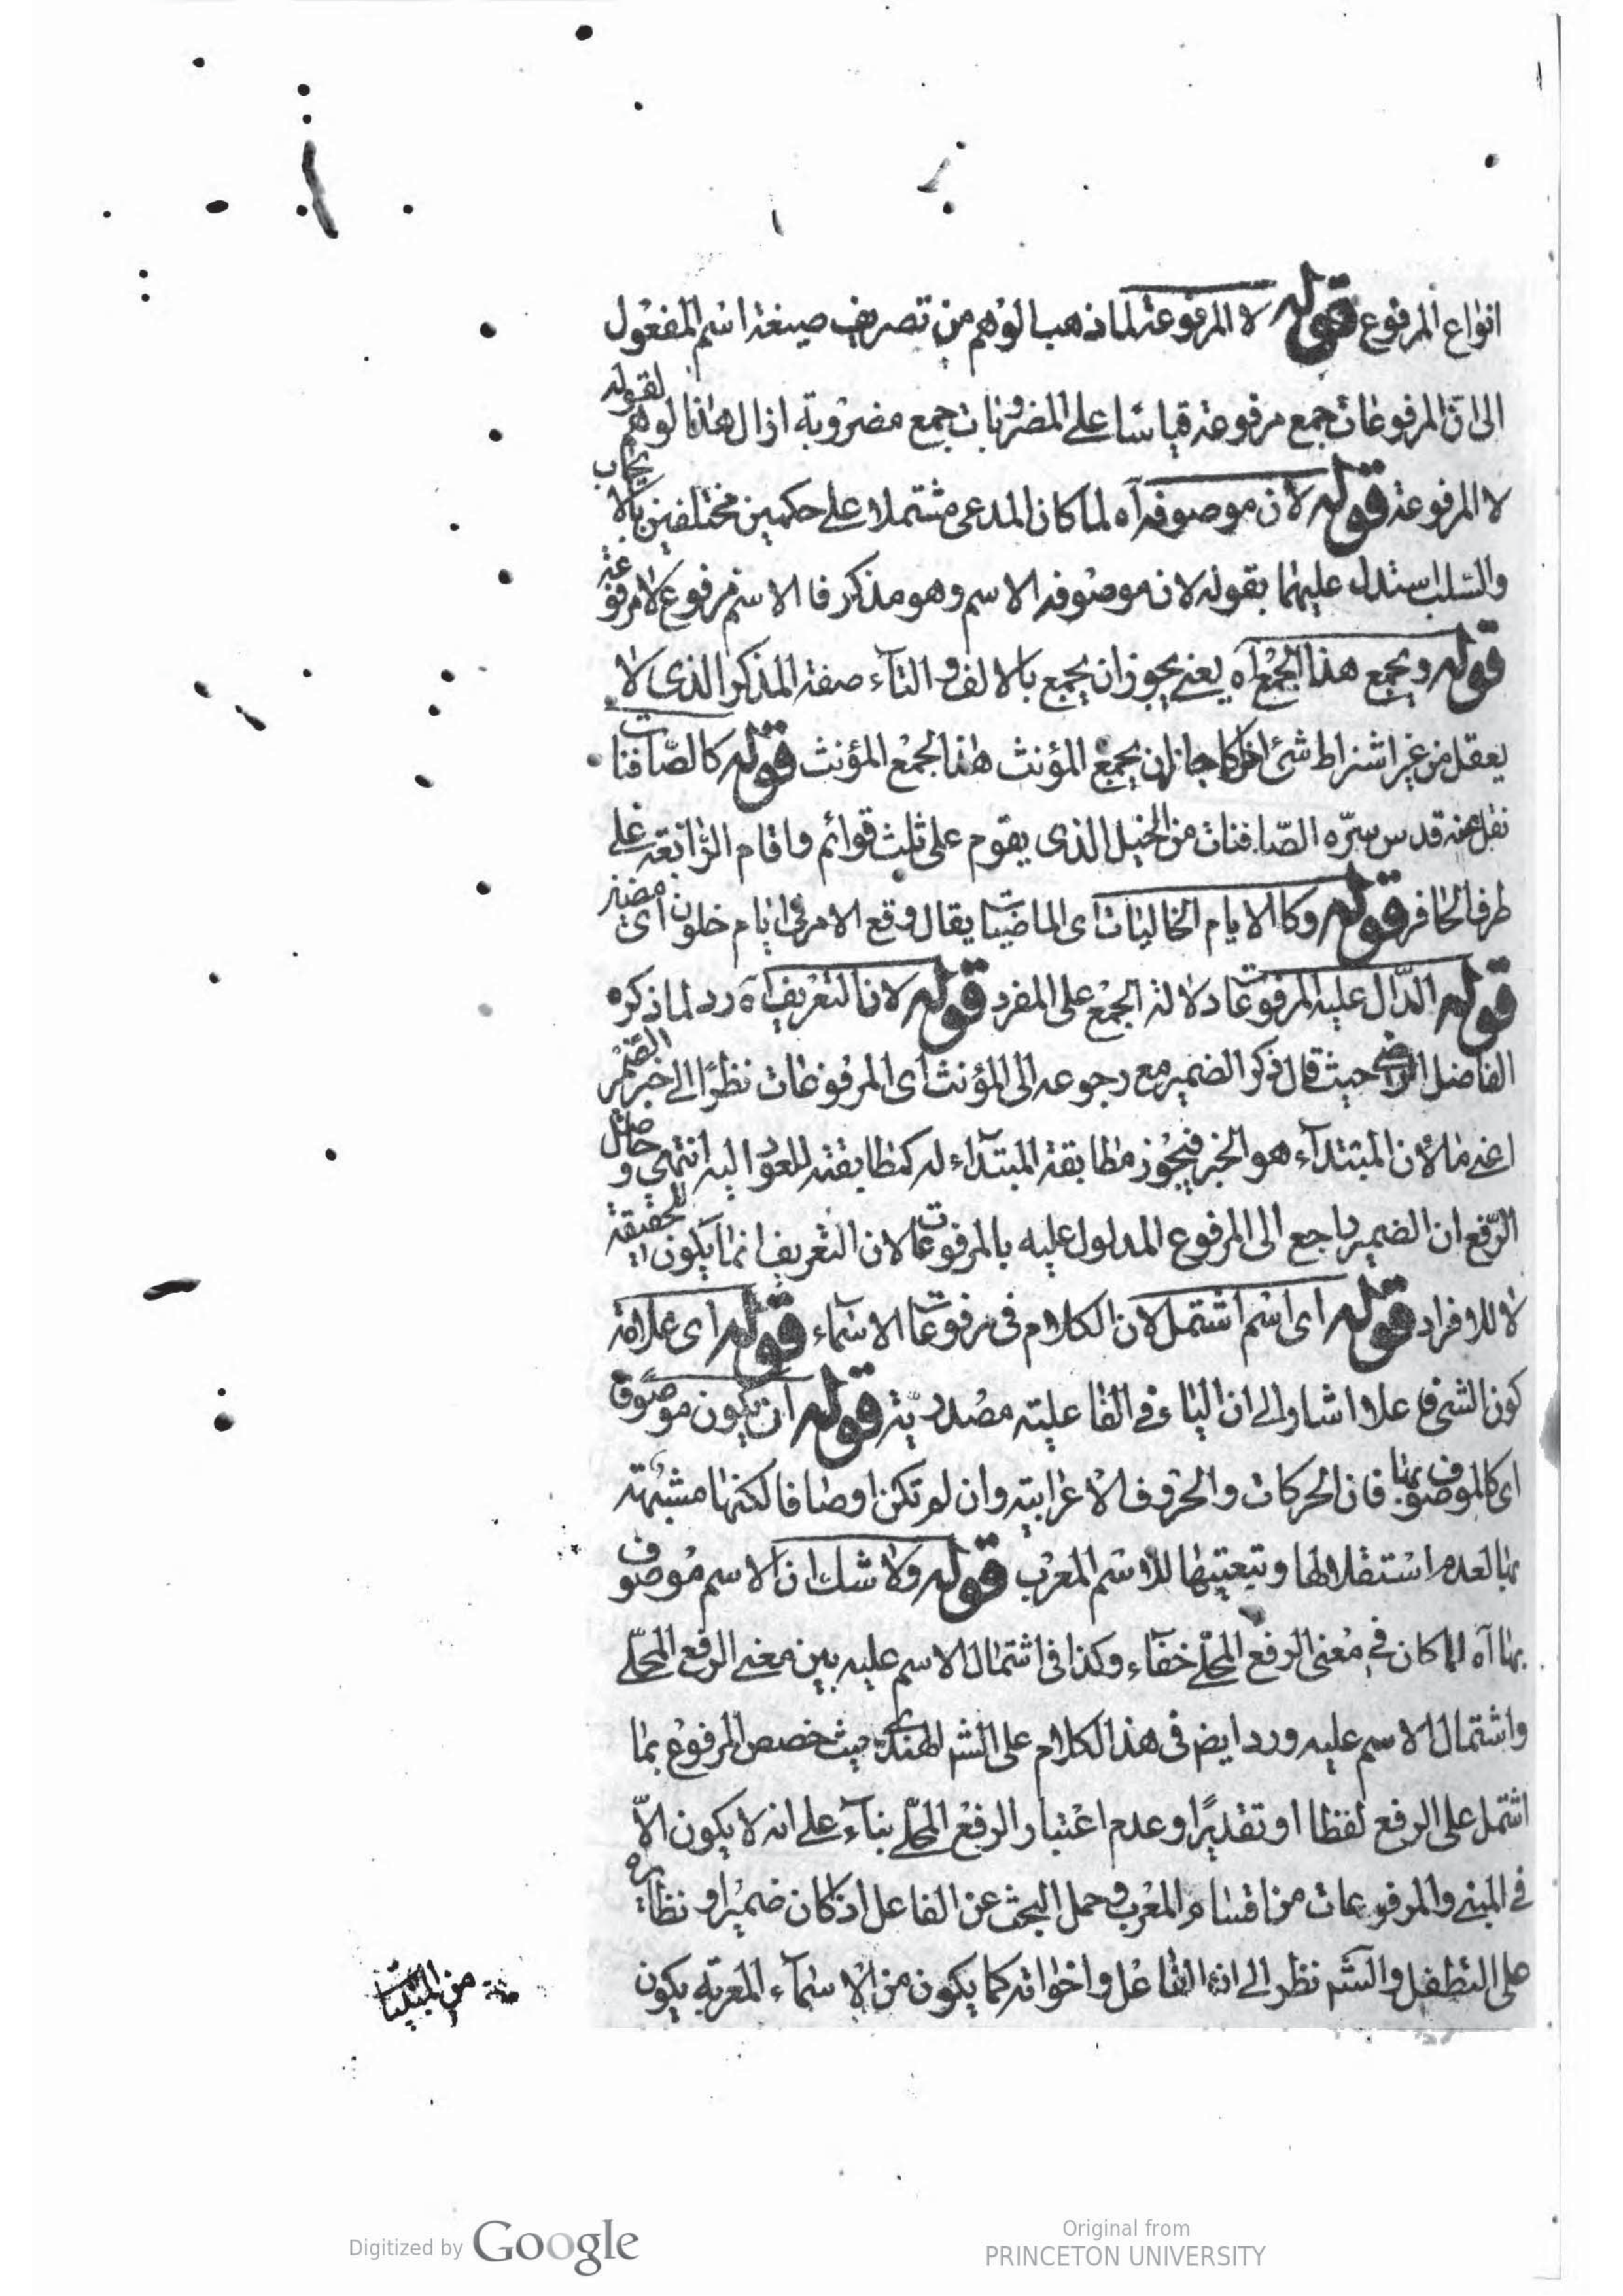 انواع المرفوع قوله لا المرفوعة لما ذهب الوهم من تصريف صيغة اسم المفعول
الى ان المرفوعات جمع مرفوعة قياسا على المضروبات جمع مضروبة ازال هذا الوهم لقوله
لا المرفوعة قوله لان موصوفه آه لما كان المدعى مشتملا على حكمين مختلفين بالايجاب
والسلب استدل عليهما بقوله لان موصوفه الاسم وهو مذكر فالاسم مرفوع لا مرفوعة
قوله ويجمع هذا الجمع آه يعنى يجوز ان يجمع بالالف والتآء صفة المذكر الذى لا
يعقل من غير اشتراط شئ اخر كما جاز ان يجمع المؤنث هذا الجمع المؤنث قوله كالصافنات
نقل عنه قدس سره الصافنات من الخيل الذى يقوم على ثلث قوائم واقام الرابعة على
طرف الحافر قوله وكالايام الخاليات اى الماضيات يقال وقع الامر فى ايام خلون اى مضين
قوله الدال عليه المرفوعات دلالة الجمع على المفرد قوله لان التعريف آه رد لما ذكره
الفاضل الرضى حيث قال ذكر الضمير مع رجوعه الى المؤنث اى المرفوعات نظرًا الى خبر الضمير
اعنى ما لان المبتدآء هو الخبر فيجوز مطابقة المبتدآء له كمطابقته للعود اليه انتهى وحاصل
الرفع ان الضمير راجع الى المرفوع المدلول عليه بالمرفوعات لان التعريف انما يكون للحقيقة
لا للافراد قوله اى اسم اشتمل لان الكلام فى مرفوعات الاسمآء قوله اى علامة
كون الشئ فاعلا اشار الى ان الياء فى الفاعلية مصدرية قوله ان يكون موصوفا
اى كالموصوف بها فان الحركات والحروف الاعرابية وان لم تكن اوصافا لكنها مشبهة
بها لعدم استقلالها وتبعيتها للاسم المعرب قوله ولا شك ان الاسم موصوف
بها آه لما كان فى معنى الرفع المحلى خفآء وكذا فى اشتمال الاسم عليه بين معنى الرفع المحلى
واشتمال الاسم عليه ورد ايضا فى هذا الكلام على الشر الهندى حيث خصص المرفوع بما
اشتمل على الرفع لفظا او تقديرًا وعدم اعتبار الرفع المحلى بنآء على انه لا يكون الاّ
فى المبنى والمرفوعات من اقسام المعرب وحمل البحث عن الفاعل اذ كان ضميرا ونظايره
على التطفل والشر نظر الى ان الفاعل واخواته كما يكون من الاسمآء المعربة يكون
من المبنيات
Digitized by Google
Original from
PRINCETON UNIVERSITY